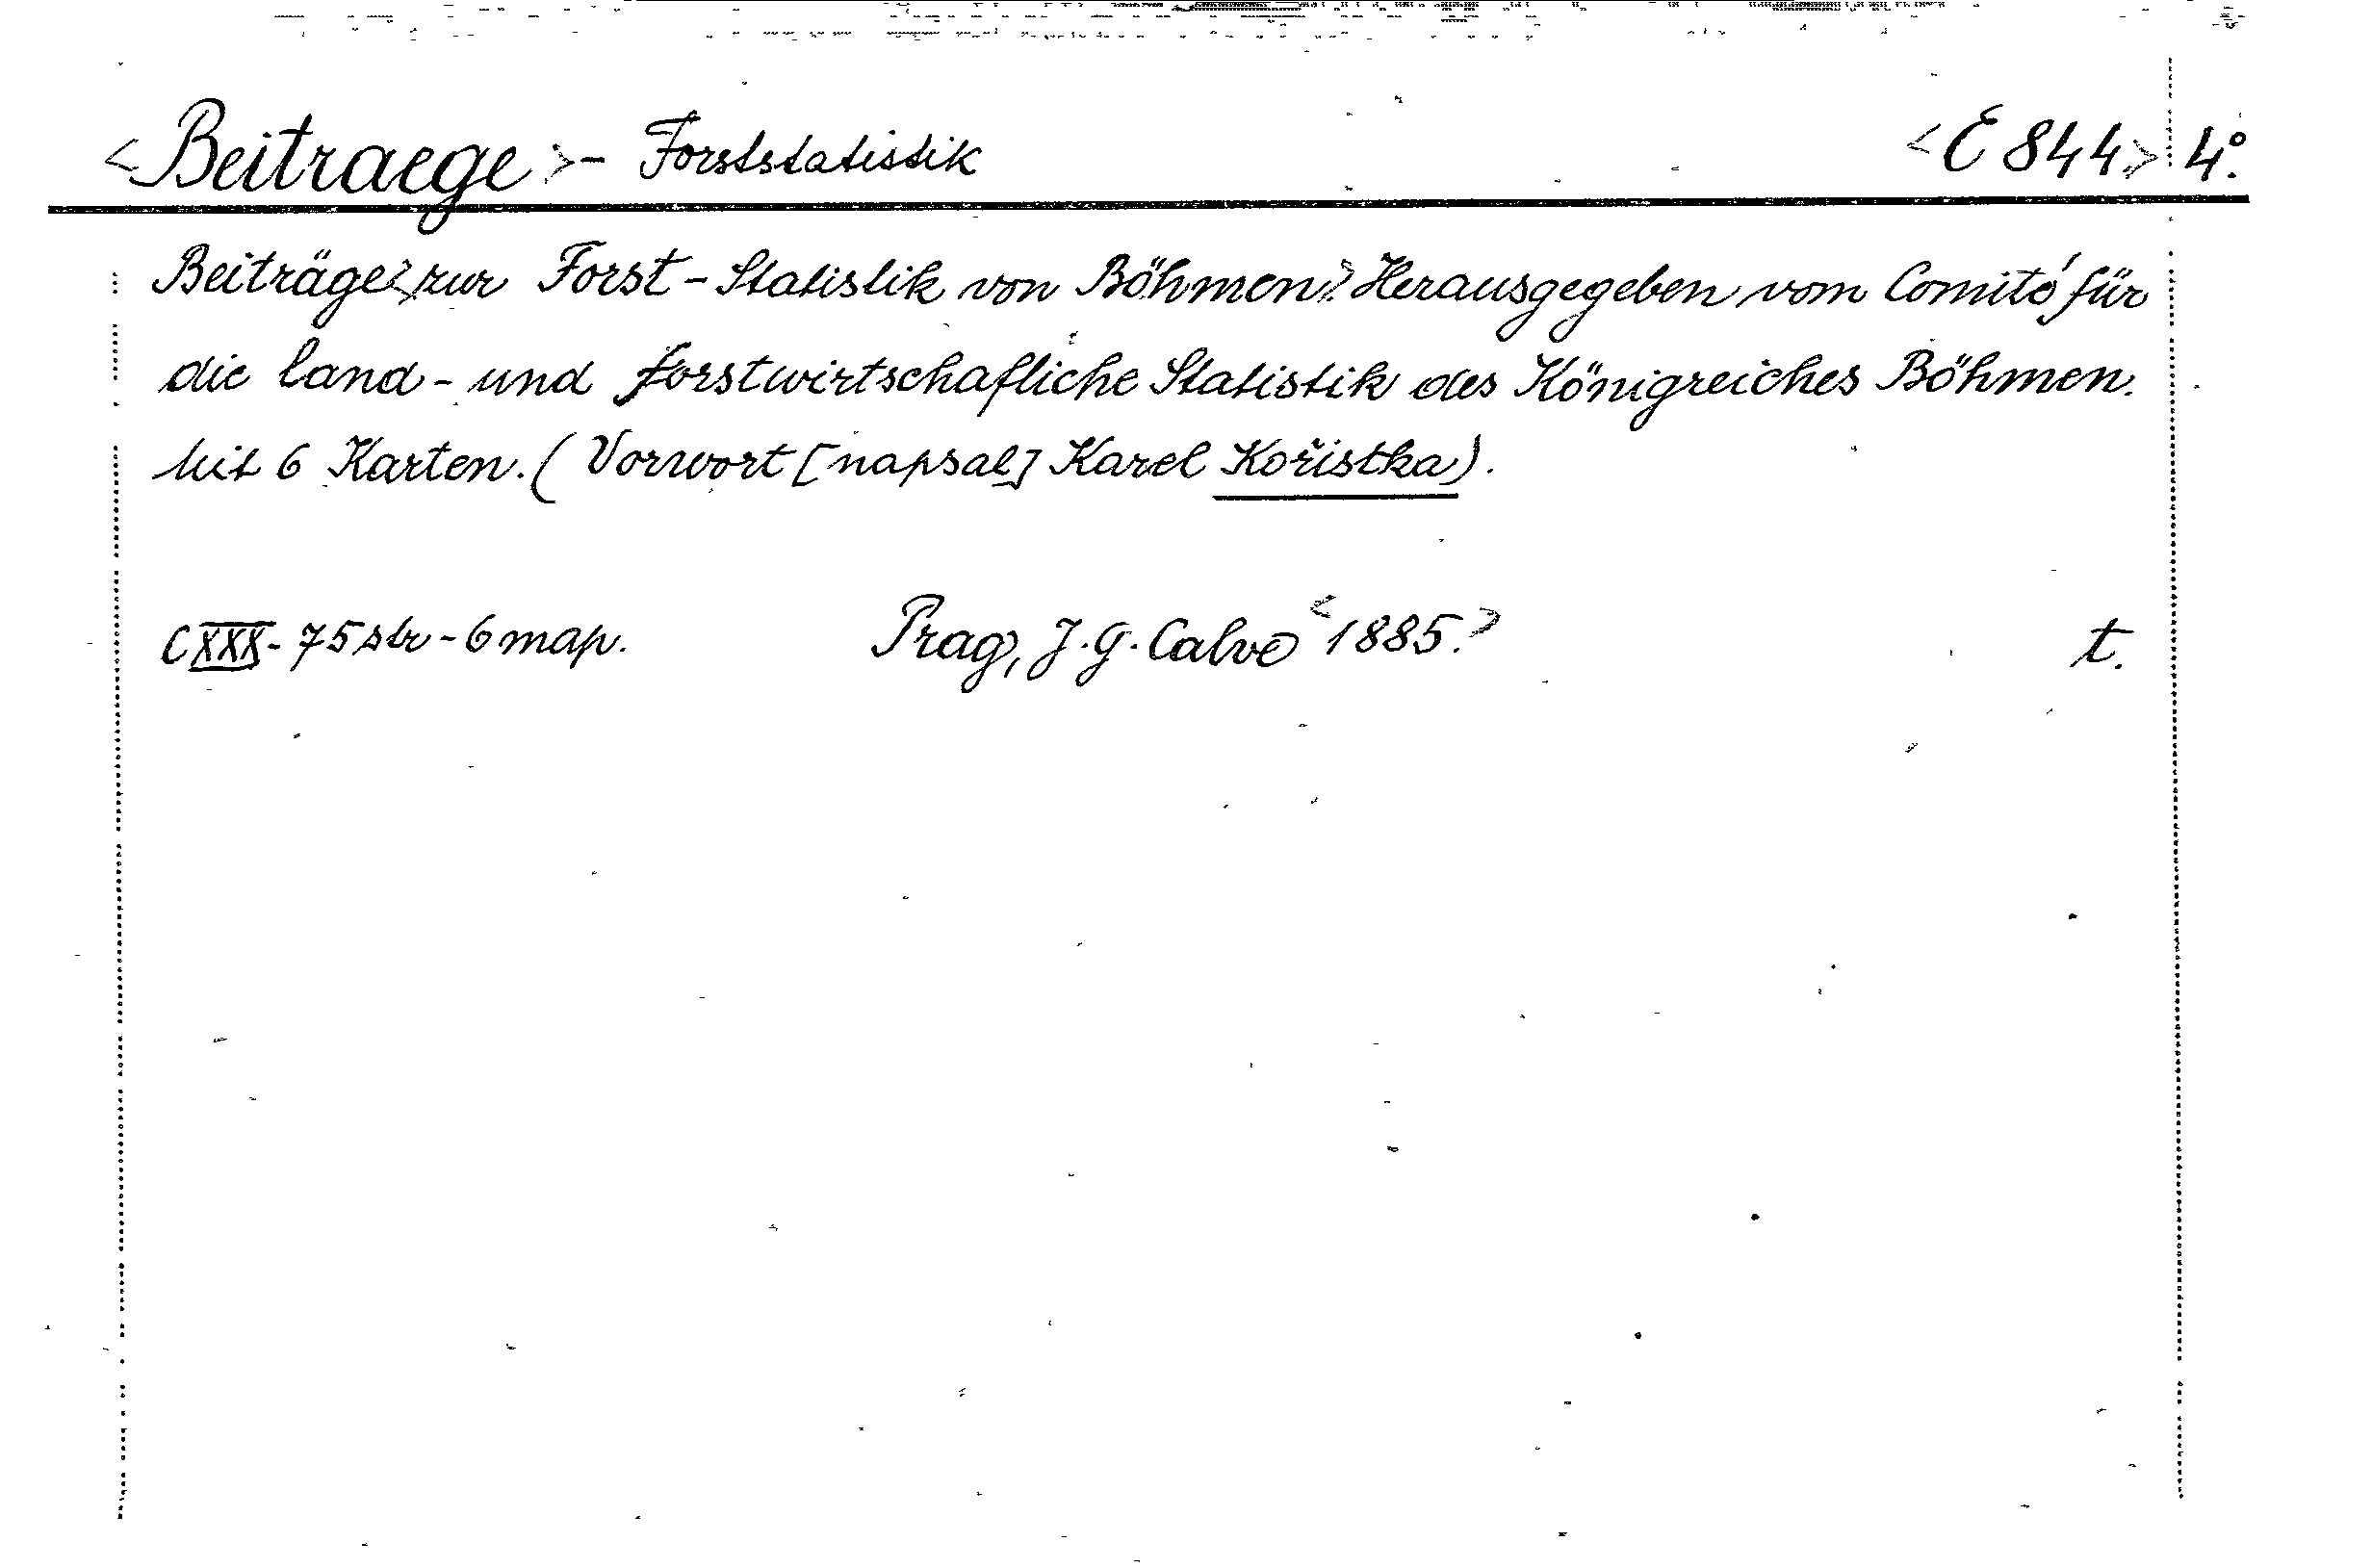 <Beitraege>- Forststatistik <E 844> 4°.
Beiträge> zur Forst-Statistik von Böhmen> Herausgegeben vom Comité für
die land- und forstwirtschafliche Statistik des Königreiches Böhmen.
Mit 6 Karten. (Vorwort [napsal] Karel Kořistka).
CXXX-75 str-6 map. Prag, J.G. Calve <1885.> t.